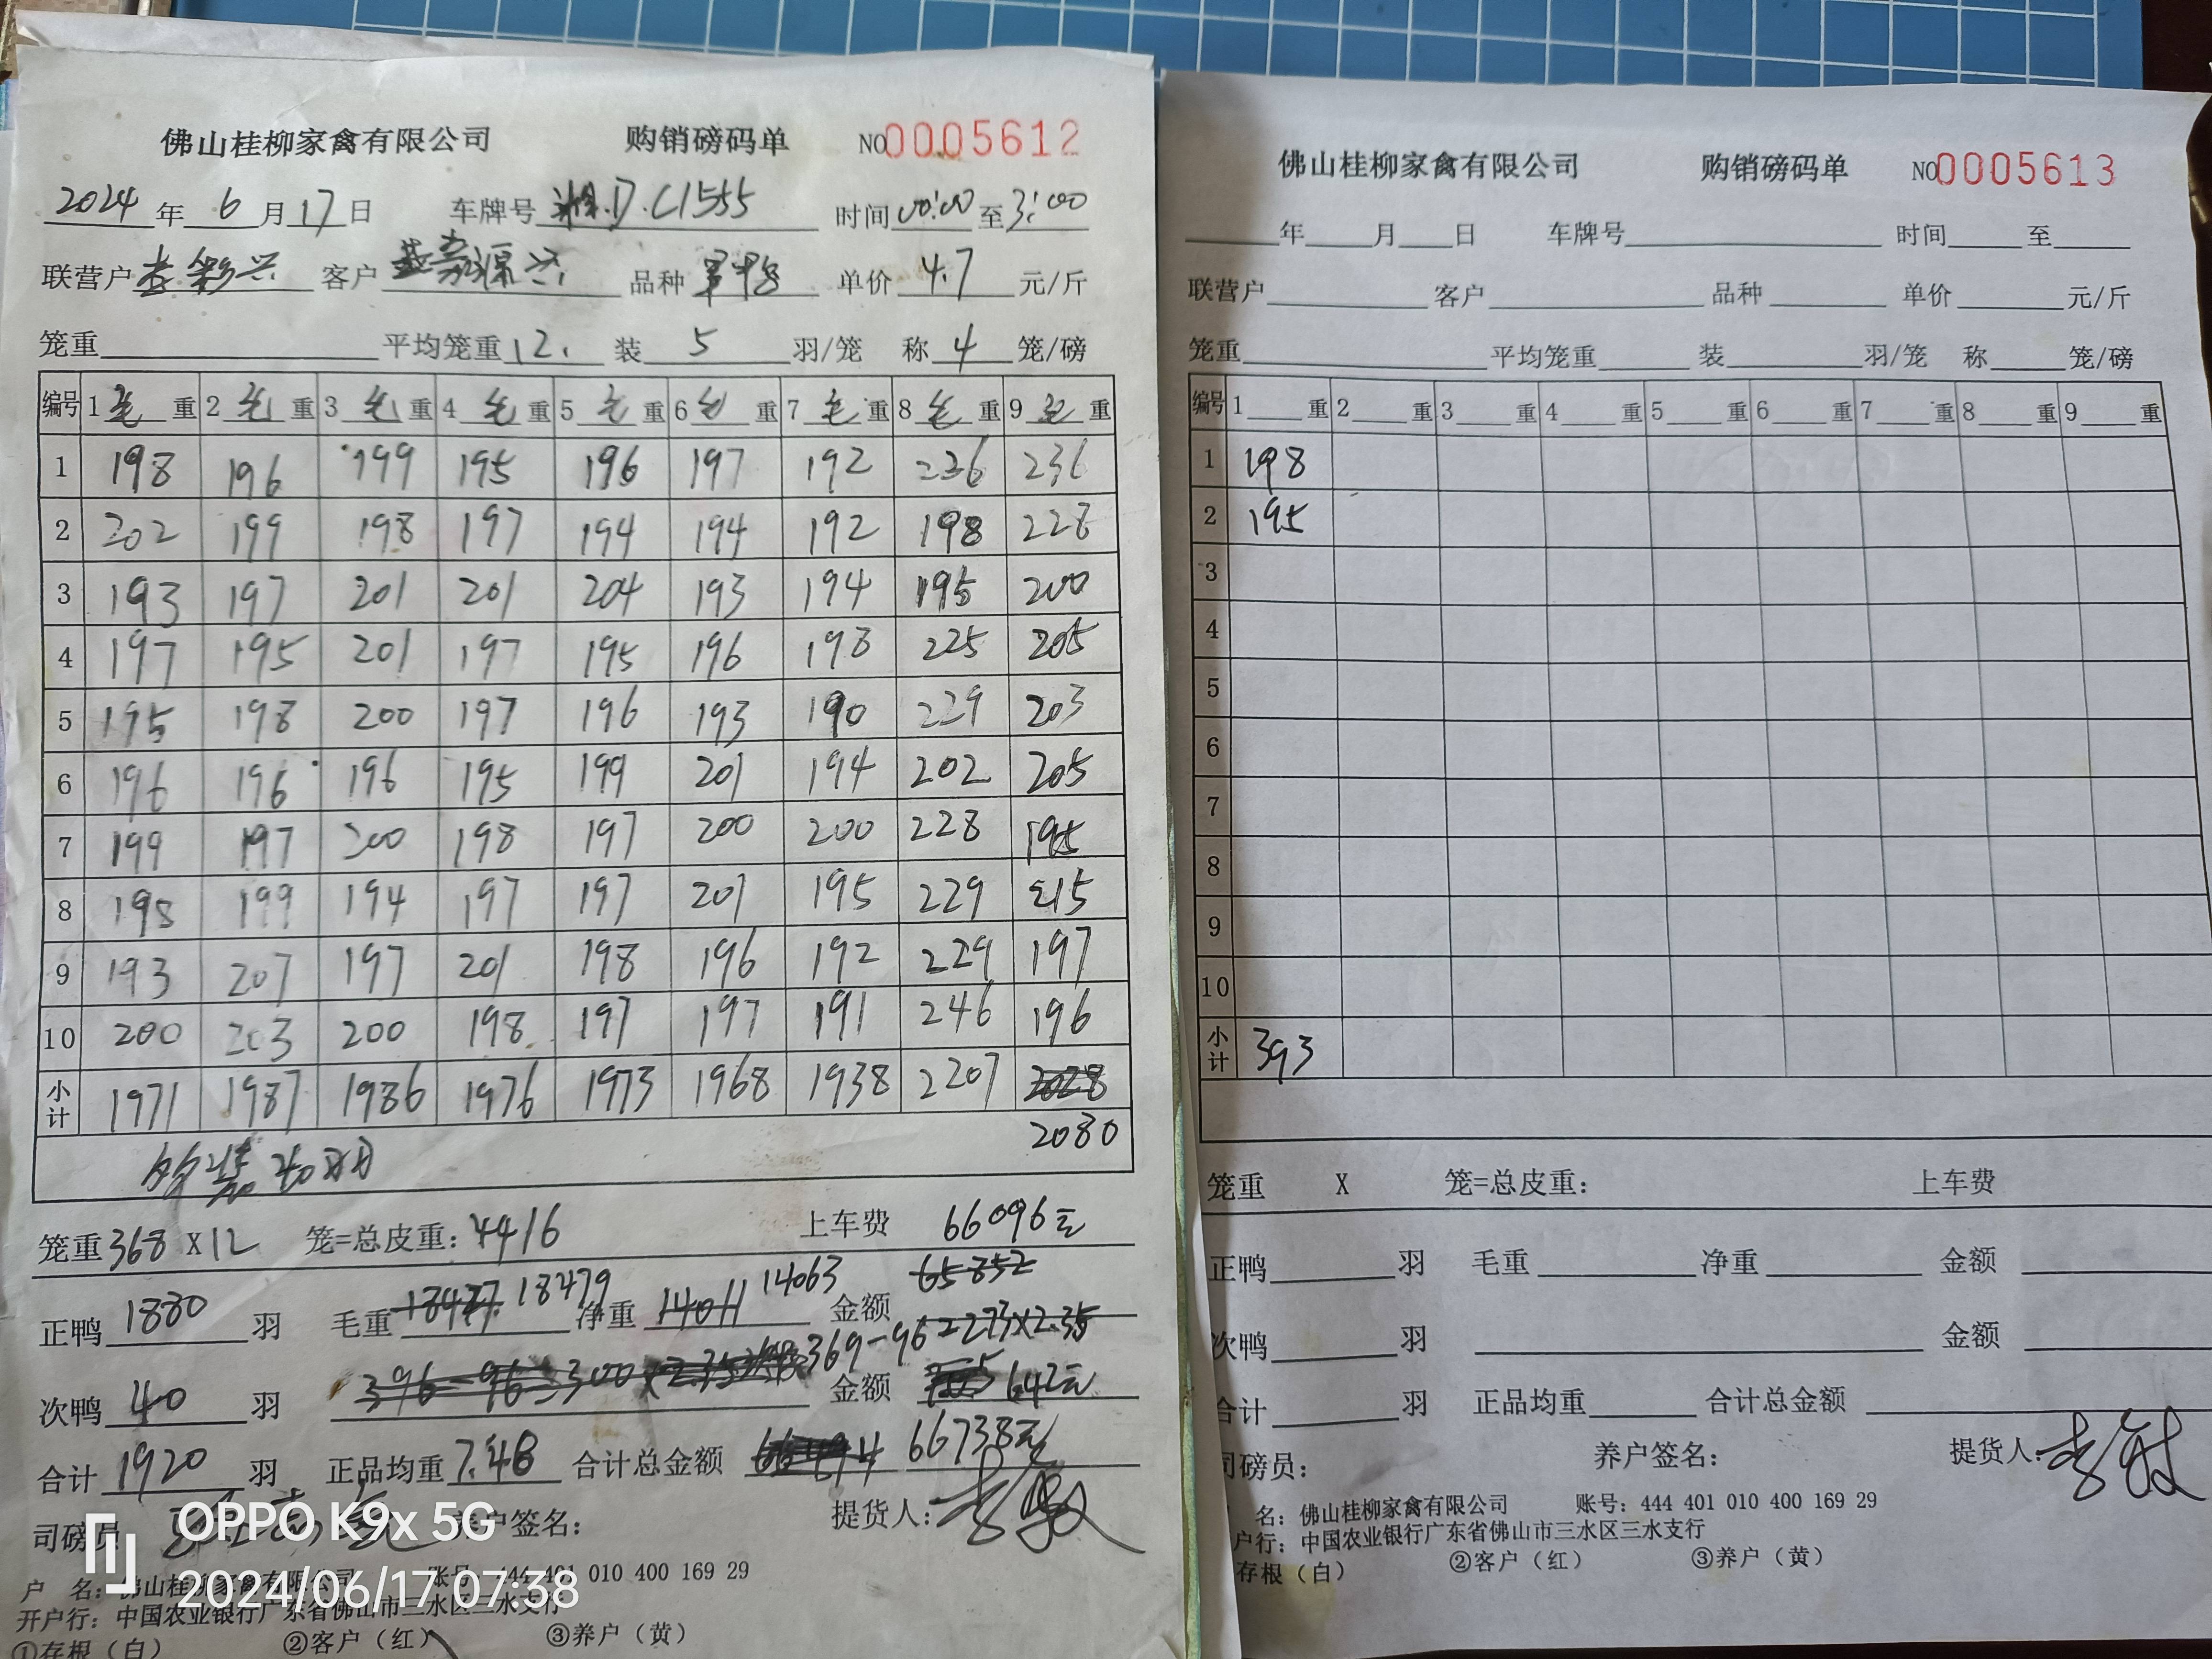 佛山桂柳家禽有限公司 购销磅码单 NO0005612
2024年6月17日 车牌号湘.D.C1555 时间00:00至3:00
联营户李 兴 客户 源 品种 单价4.7元/斤
笼重 平均笼重12. 装5羽/笼 称4笼/磅
编号 1毛重 2毛重 3毛重 4毛重 5毛重 6毛重 7毛重 8毛重 9毛重
1 198 196 199 195 196 197 192 236 236
2 202 199 198 197 194 194 192 198 228
3 193 197 201 201 204 193 194 195 200
4 197 195 201 197 195 196 198 225 205
5 195 198 200 197 196 193 190 229 203
6 196 196 196 195 199 201 194 202 205
7 199 197 200 198 197 200 200 228 195
8 198 199 194 197 197 201 195 229 215
9 193 207 197 201 198 196 192 229 197
10 200 203 200 198 197 197 191 246 196
小计 1971 1987 1986 1976 1973 1968 1938 2207 2028
2080
笼重368X12 笼=总皮重:4416 上车费 66096元
65852
正鸭1880羽 毛重18427 18479 净重14011 14063 金额
369-96=273X2.35
次鸭40羽 396-96=300X2.35 金额 642元
合计1920羽 正品均重7.48 合计总金额 66738元
司磅员 养户签名: 提货人:李敏
户 名:佛山桂柳家禽有限公司 账号:444 401 010 400 169 29
开户行:中国农业银行广东省佛山市三水区三水支行
①存根(白) ②客户(红) ③养户(黄)
OPPO K9x 5G
2024/06/17 07:38
佛山桂柳家禽有限公司 购销磅码单 NO0005613
年 月 日 车牌号 时间 至
联营户 客户 品种 单价 元/斤
笼重 平均笼重 装 羽/笼 称 笼/磅
编号 1 重 2 重 3 重 4 重 5 重 6 重 7 重 8 重 9 重
1 198
2 195
3
4
5
6
7
8
9
10
小计 393
笼重 X 笼=总皮重: 上车费
正鸭 羽 毛重 净重 金额
次鸭 羽 金额
合计 羽 正品均重 合计总金额
司磅员: 养户签名: 提货人:李敏
名:佛山桂柳家禽有限公司 账号:444 401 010 400 169 29
户行:中国农业银行广东省佛山市三水区三水支行
存根(白) ②客户(红) ③养户(黄)